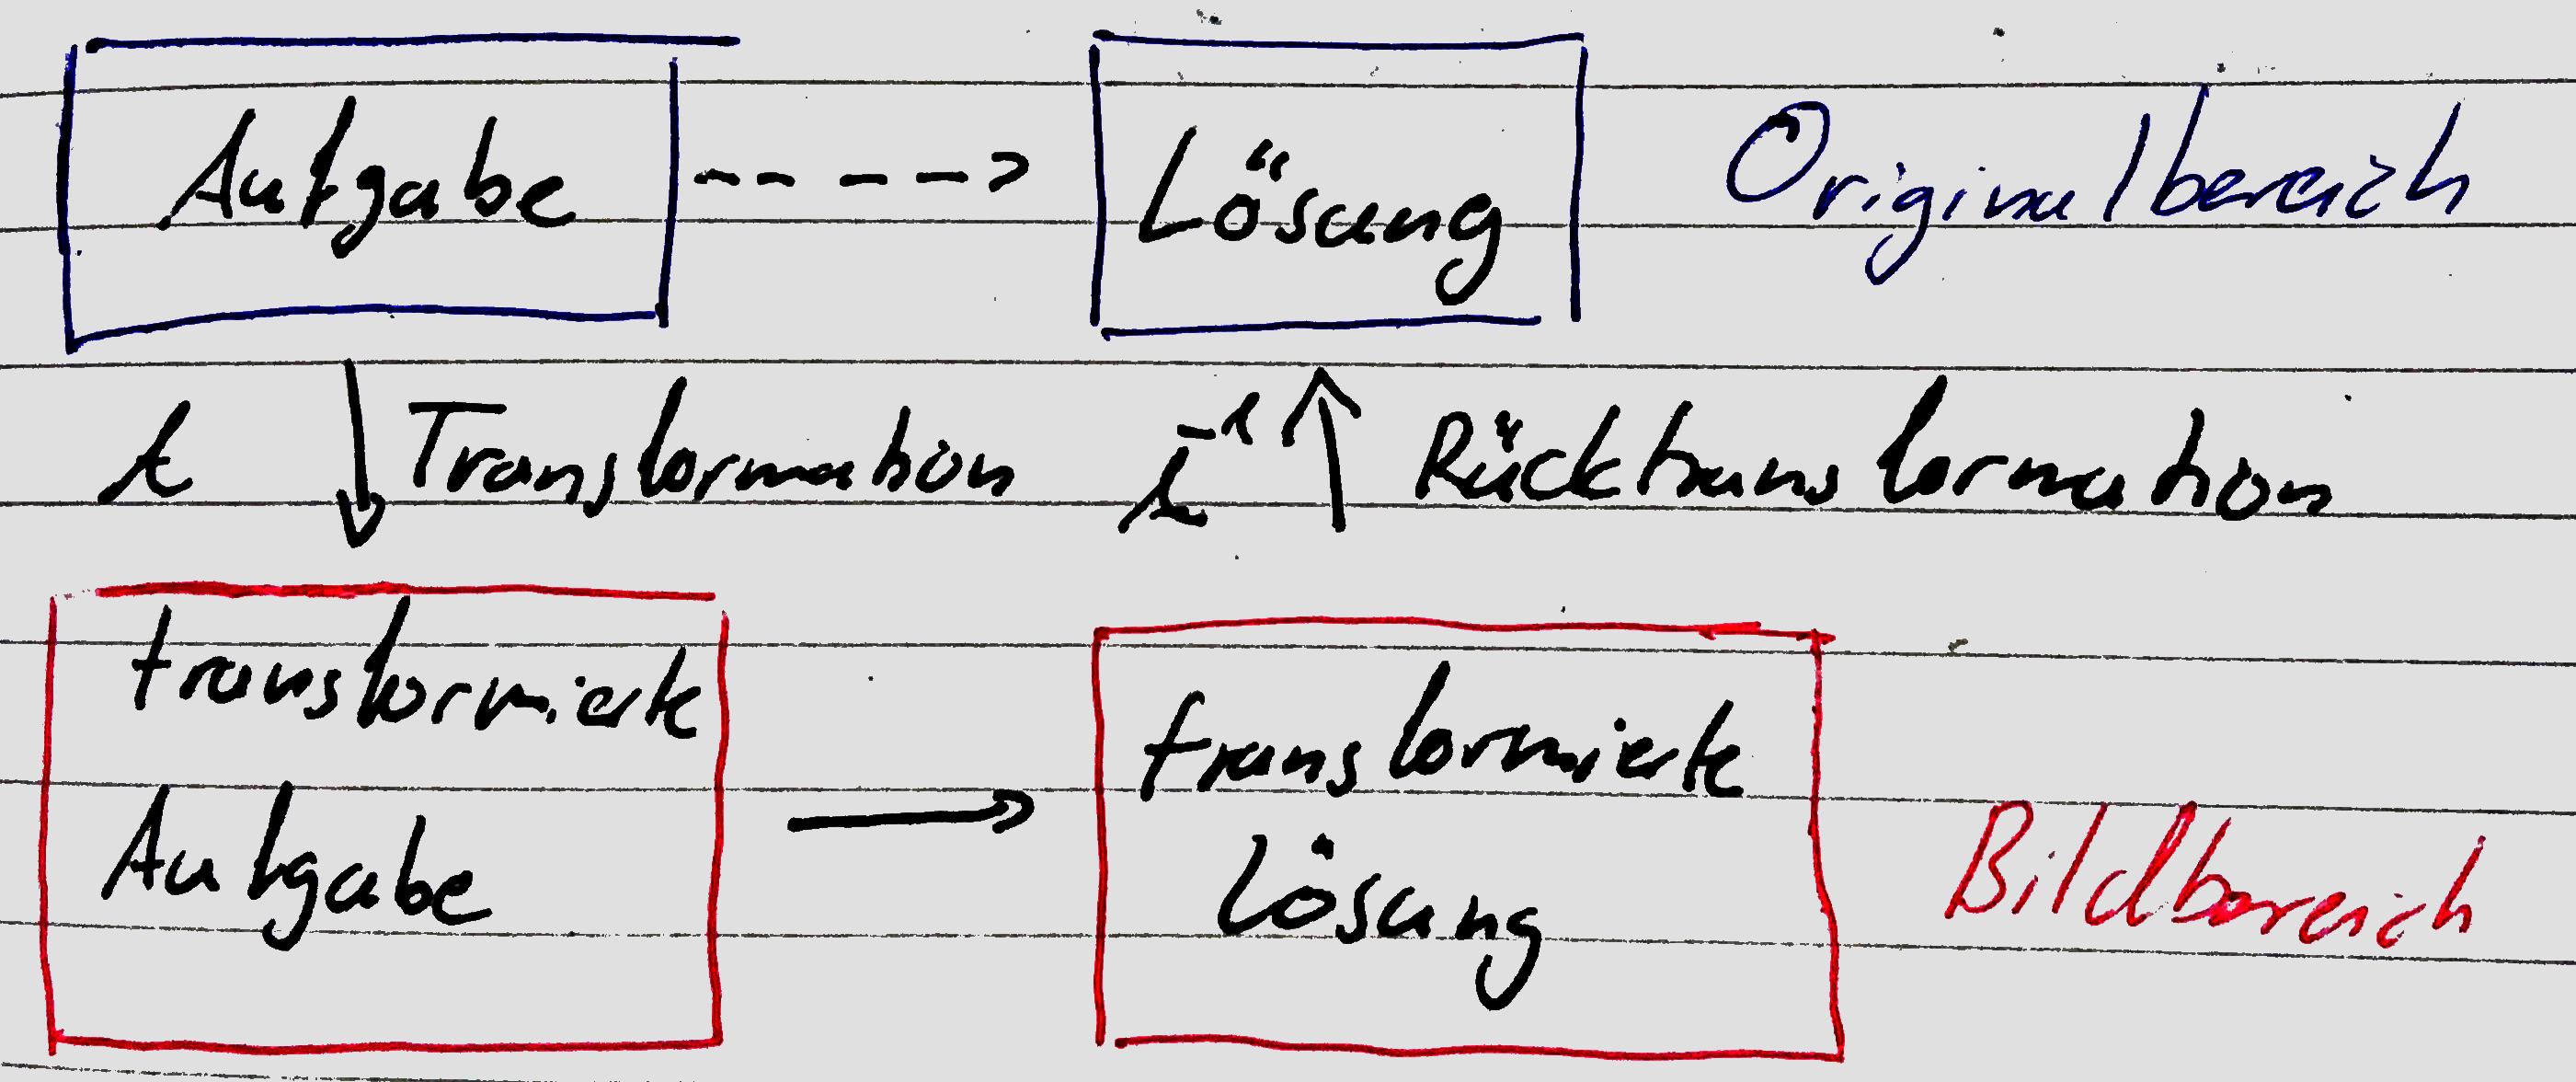 Aufgabe Lösung Originalbereich
Transformation Rücktransformation
transformierte transformierte
Aufgabe Lösung Bildbereich